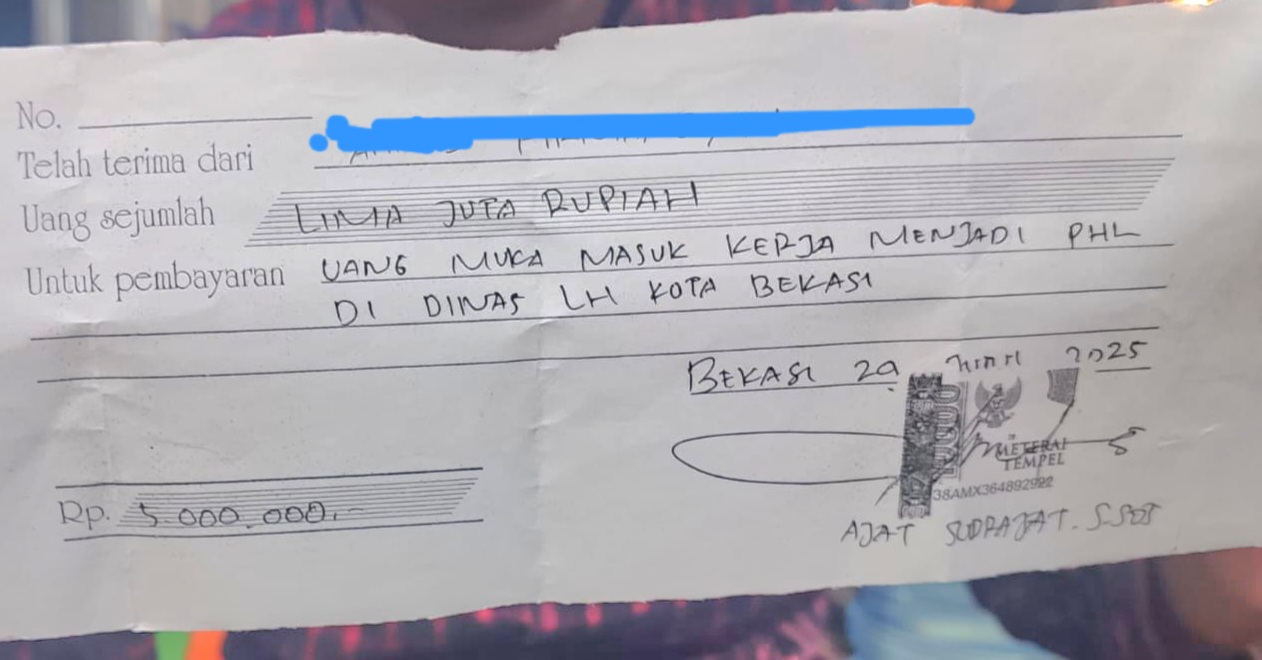 No.
Telah terima dari
Uang sejumlah LIMA JUTA RUPIAH
Untuk pembayaran UANG MUKA MASUK KERJA MENJADI PHL
DI DINAS LH KOTA BEKASI
BEKASI 29 2025
METERAI
TEMPEL
38AMX364892992
Rp. 5.000.000,-
AJAT SUDRAJAT. S.SOS